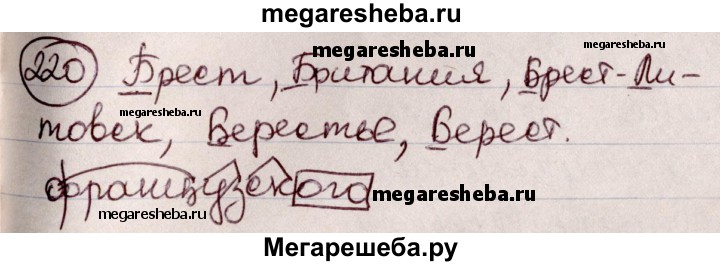 megaresheba.ru
220 Брест, Британия, Брест-Ли-
megaresheba.ru
megaresheba.ru
товск, Берестье, Берест.
французского
megaresheba.ru
megaresheba.ru
Мегарешеба.ру